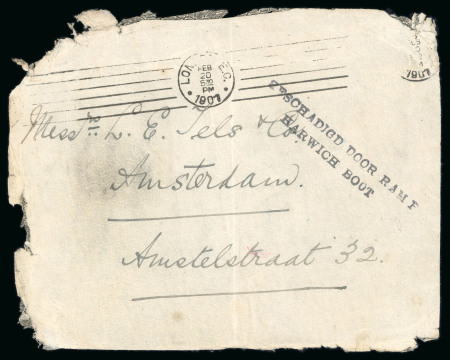 LONDON. E.C.
FEB
20
PM
1907
1907
BESCHADIGD DOOR RAMP
HARWICH BOOT
Messrs. L. E. Tels & Co.
Amsterdam.
Amstelstraat 32.